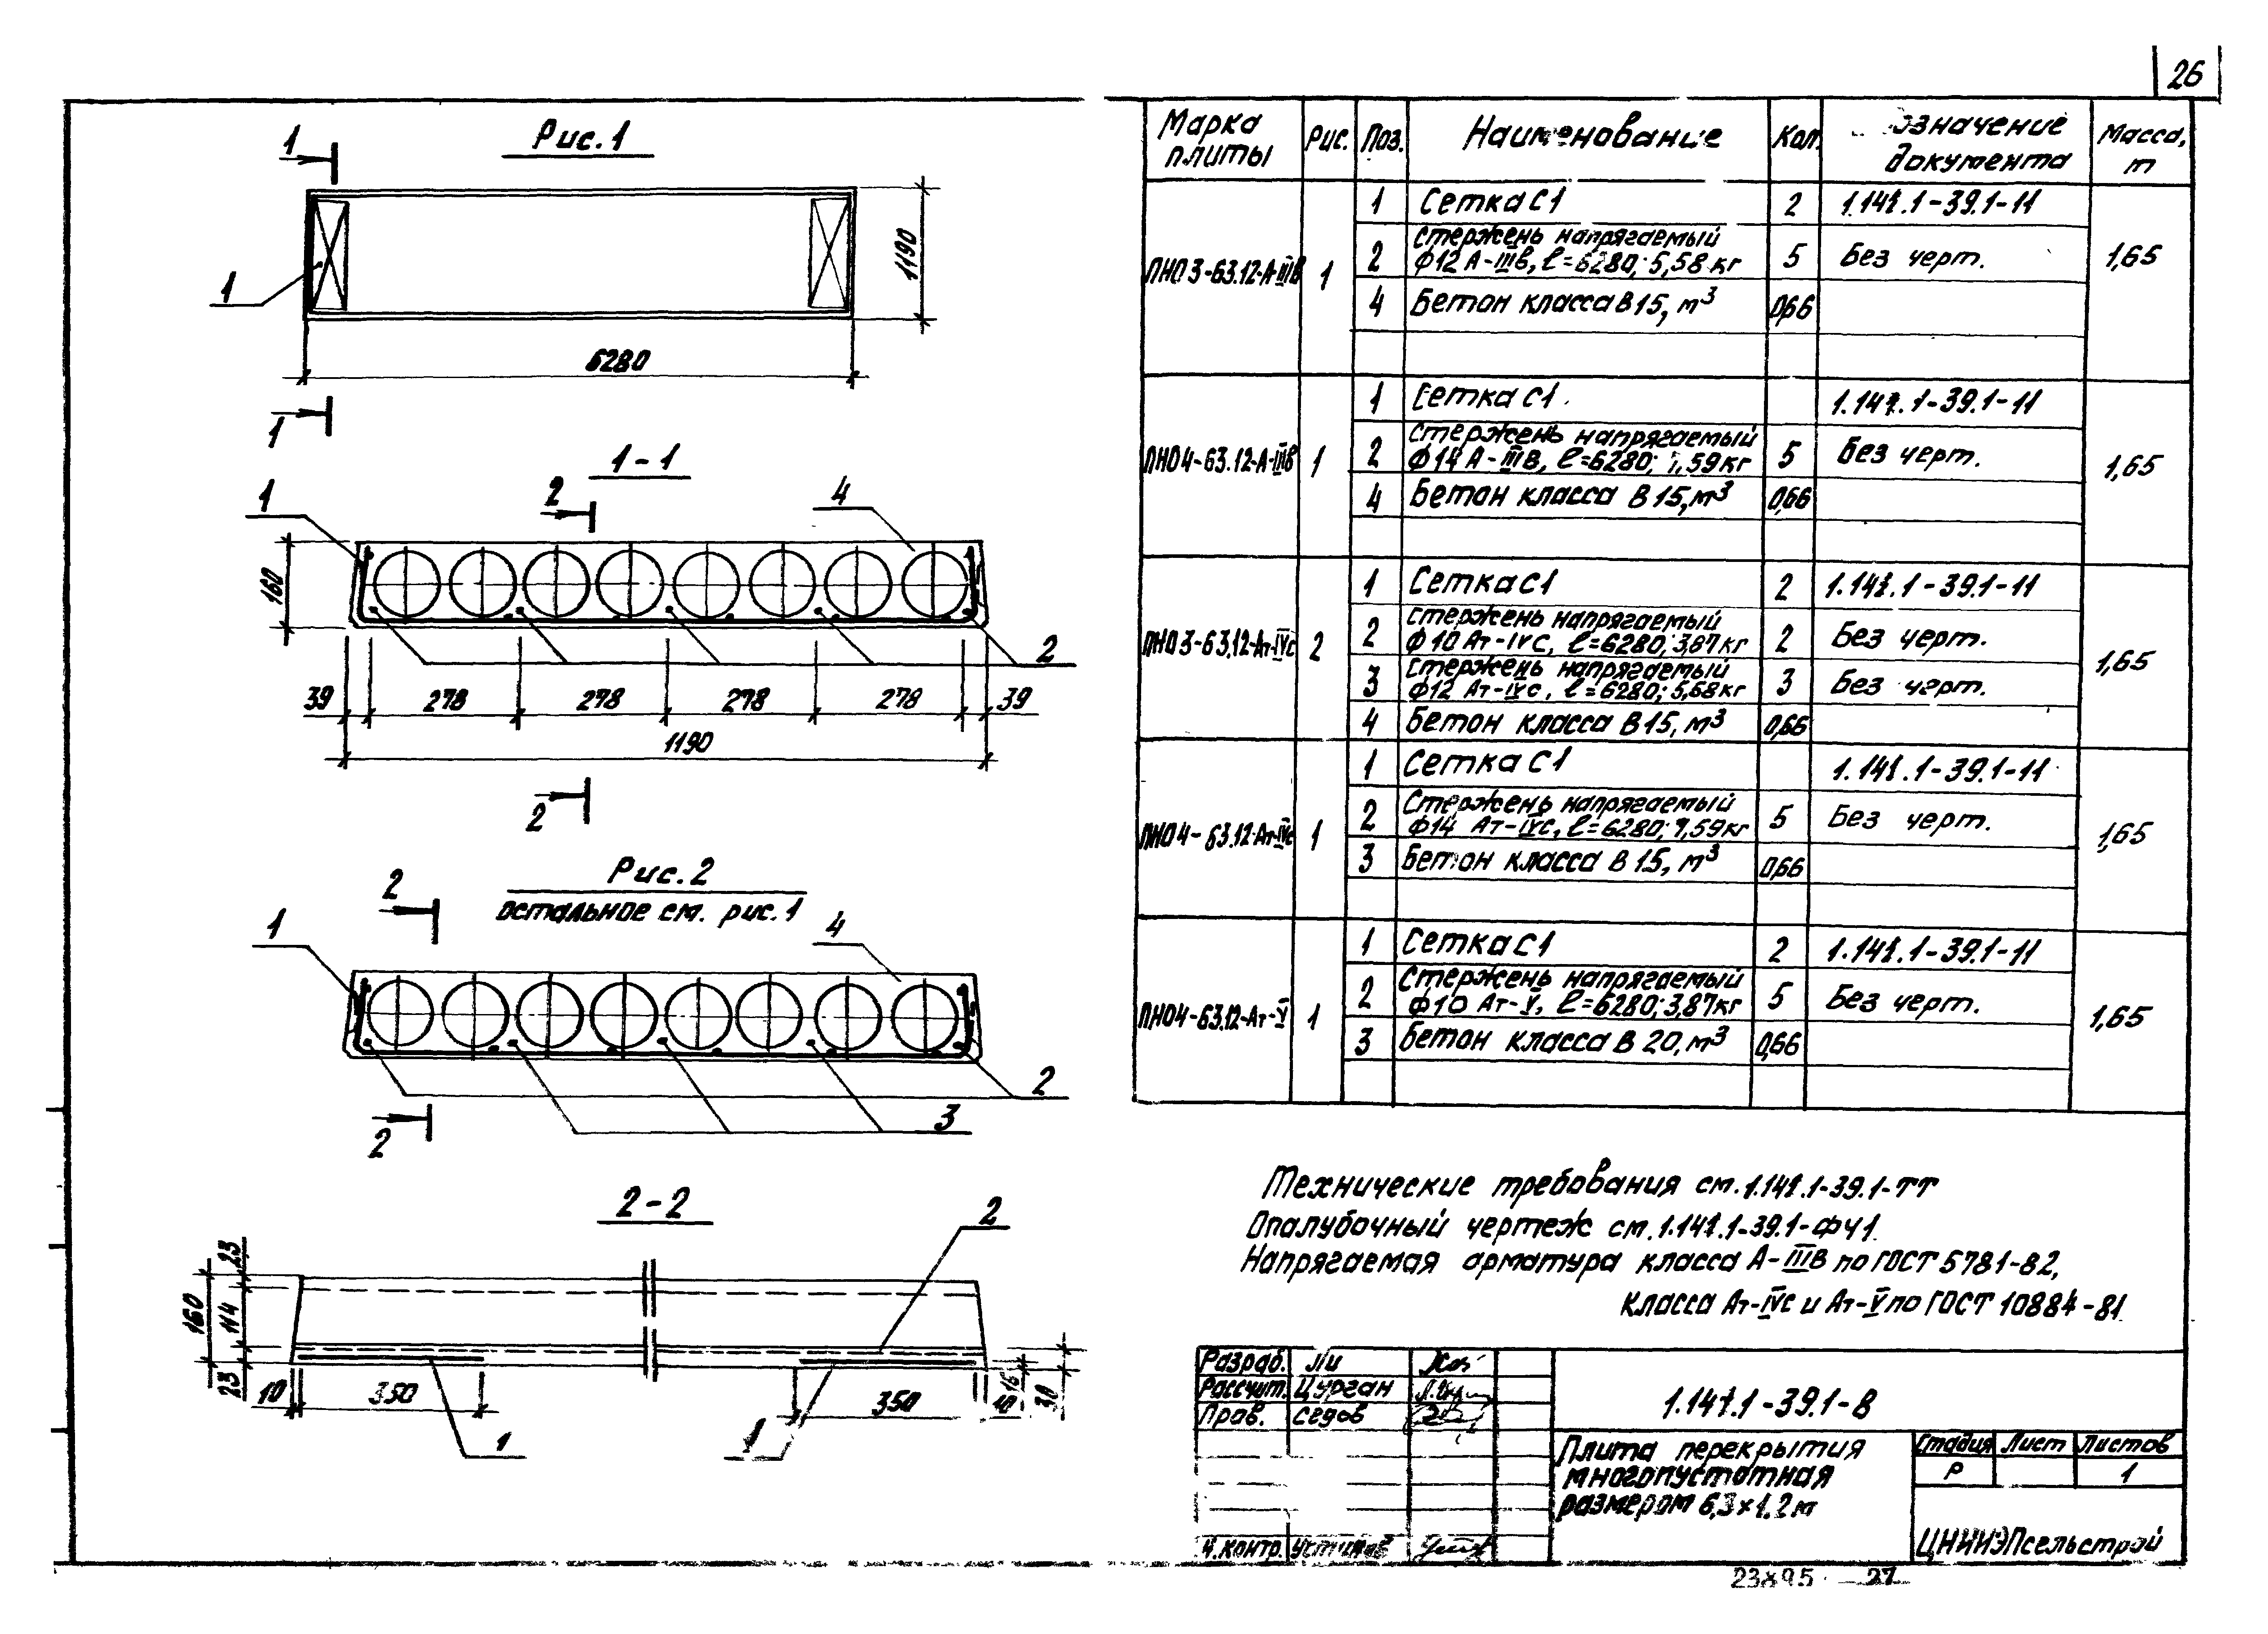 26
Рис. 1
1
1190
1
6280
1
1-1
1
2
4
160
2
39
278
278
278
278
39
1190
2
Рис. 2
остальное см. рис. 1
2
1
4
2
3
2
2-2
2
23
160
114
23
10
350
350
10
16
30
1
1
Марка плиты
Рис.
Поз.
Наименование
Кол.
означение документа
Масса, т
ПНО3-63.12-А-IIIв
1
1,65
1 Сетка С1 2 1.141.1-39.1-11
2 Стержень напрягаемый
ф12 А-IIIв, ℓ=6280; 5,58 кг 5 Без черт.
4 Бетон класса В15, м³ 0,66
ПНО4-63.12-А-IIIв
1
1,65
1 Сетка С1 1.141.1-39.1-11
2 Стержень напрягаемый
ф14 А-IIIв, ℓ=6280; ,59кг 5 Без черт.
4 Бетон класса В15, м³ 0,66
ПНО3-63.12-Ат-IVс
2
1,65
1 Сетка С1 2 1.141.1-39.1-11
2 Стержень напрягаемый
ф10 Ат-IVс, ℓ=6280; 3,87кг 2 Без черт.
3 Стержень напрягаемый
ф12 Ат-IVс, ℓ=6280; 5,58кг 3 Без черт.
4 Бетон класса В15, м³ 0,66
ПНО4-63.12-Ат-IVс
1
1,65
1 Сетка С1 1.141.1-39.1-11
2 Стержень напрягаемый
ф14 Ат-IVс, ℓ=6280; 7,59кг 5 Без черт.
3 Бетон класса В15, м³ 0,66
ПНО4-63.12-Ат-V
1
1,65
1 Сетка С1 2 1.141.1-39.1-11
2 Стержень напрягаемый
ф10 Ат-V, ℓ=6280; 3,87кг 5 Без черт.
3 Бетон класса В20, м³ 0,66
Технические требования см. 1.141.1-39.1-ТТ
Опалубочный чертеж см. 1.141.1-39.1-ФЧ1
Напрягаемая арматура класса А-IIIв по ГОСТ 5781-82,
класса Ат-IVс и Ат-V по ГОСТ 10884-81
Разраб. Ли
Рассчит. Цурган
Пров. Седов
Н.контр. Устинов
1.141.1-39.1-8
Плита перекрытия
многопустотная
размером 6,3×1,2м
Стадия Лист Листов
Р 1
ЦНИИЭПсельстрой
23895 27